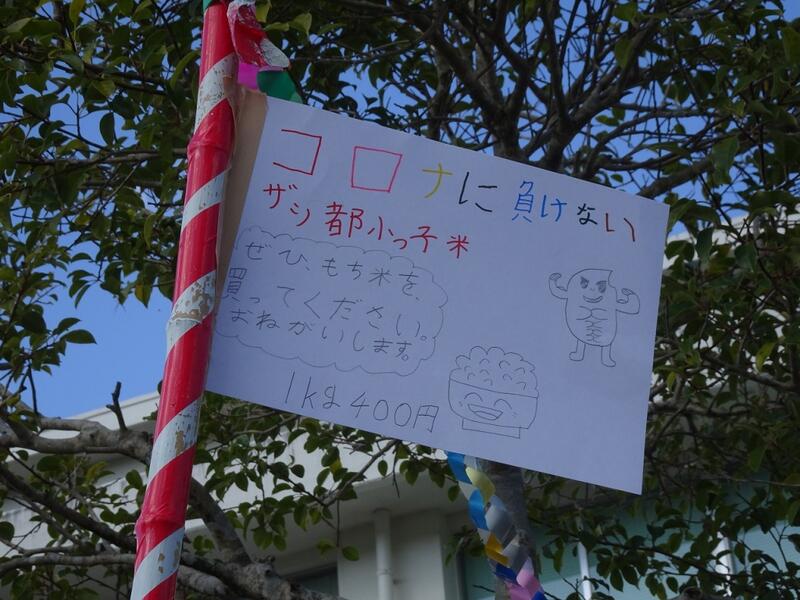 コロナに負けない
ザシ都小っ子米
ぜひ、もち米を、
買ってください。
おねがいします。
1kg400円